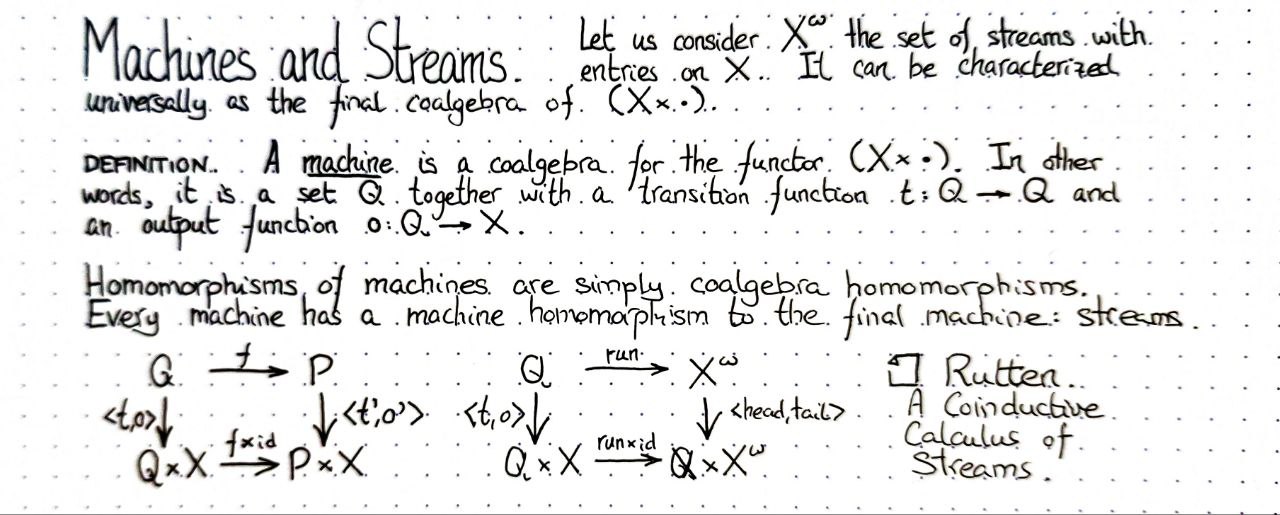 Machines and Streams. Let us consider X^ω the set of streams with
entries on X. It can be characterized
universally as the final coalgebra of (X×•).
DEFINITION. A machine is a coalgebra for the functor (X×•). In other
words, it is a set Q together with a transition function t: Q → Q and
an output function o: Q → X.
Homomorphisms of machines are simply coalgebra homomorphisms.
Every machine has a machine homomorphism to the final machine: streams.
Q f→ P
<t,o>↓ ↓<t',o'>
Q×X f×id→ P×X
Q run→ X^ω
<t,o>↓ ↓<head,tail>
Q×X run×id→ X×X^ω
Rutten.
A Coinductive
Calculus of
Streams.